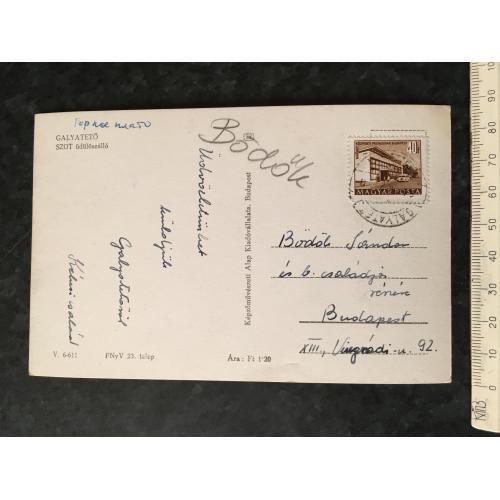 Горное плато
GALYATETŐ
SZOT üdülőszálló
Bödők
Üdvözletünket
küldjük
Galyatetőről
Kalmi család
Képzőművészeti Alap Kiadóvállalata, Budapest
V. 6-611
FNyV 23. telep
Ára: Ft 1·20
40f
MAGYAR POSTA
GALYATETŐ
Bödők Sándor
és b. családja
részére
Budapest
XIII., Visegrádi u. 92.